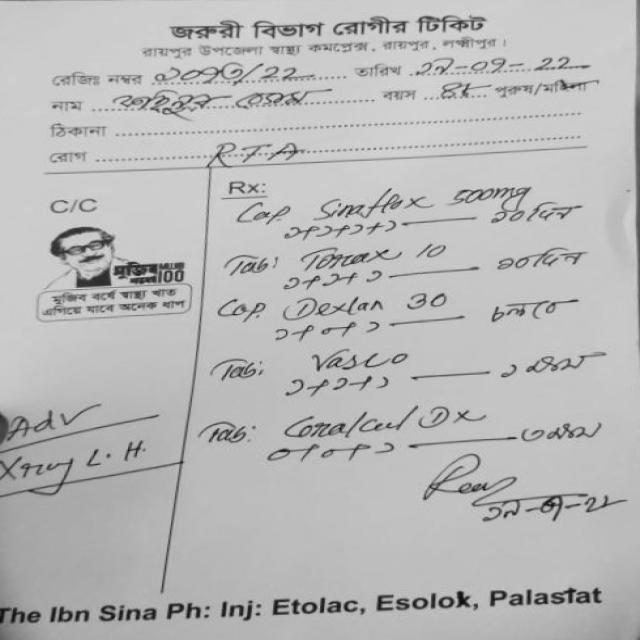 জরুরী বিভাগ রোগীর টিকিট
রায়পুর উপজেলা স্বাস্থ্য কমপ্লেক্স, রায়পুর, লক্ষ্মীপুর।
রেজিঃ নম্বর /22 তারিখ ২৯-০৭-২২
নাম বয়স পুরুষ/মহিলা
ঠিকানা
রোগ R.T.A
C/C
মুজিব 100
মুজিব বর্ষে স্বাস্থ্য খাত
এগিয়ে যাবে অনেক ধাপ
Adv
Xray L.H.
Rx:
Cap. Sinaflox 500mg
১+১+১+১ — ১০ দিন
Tab: Torax 10
১+১+১ — ১০ দিন
Cap. Dexlan 30
১+০+১ — চলবে
Tab: Vasco
১+১+১ — ১ মাস
Tab: Coralcal Dx
০+০+১ — ৩ মাস
The Ibn Sina Ph: Inj: Etolac, Esolok, Palastat